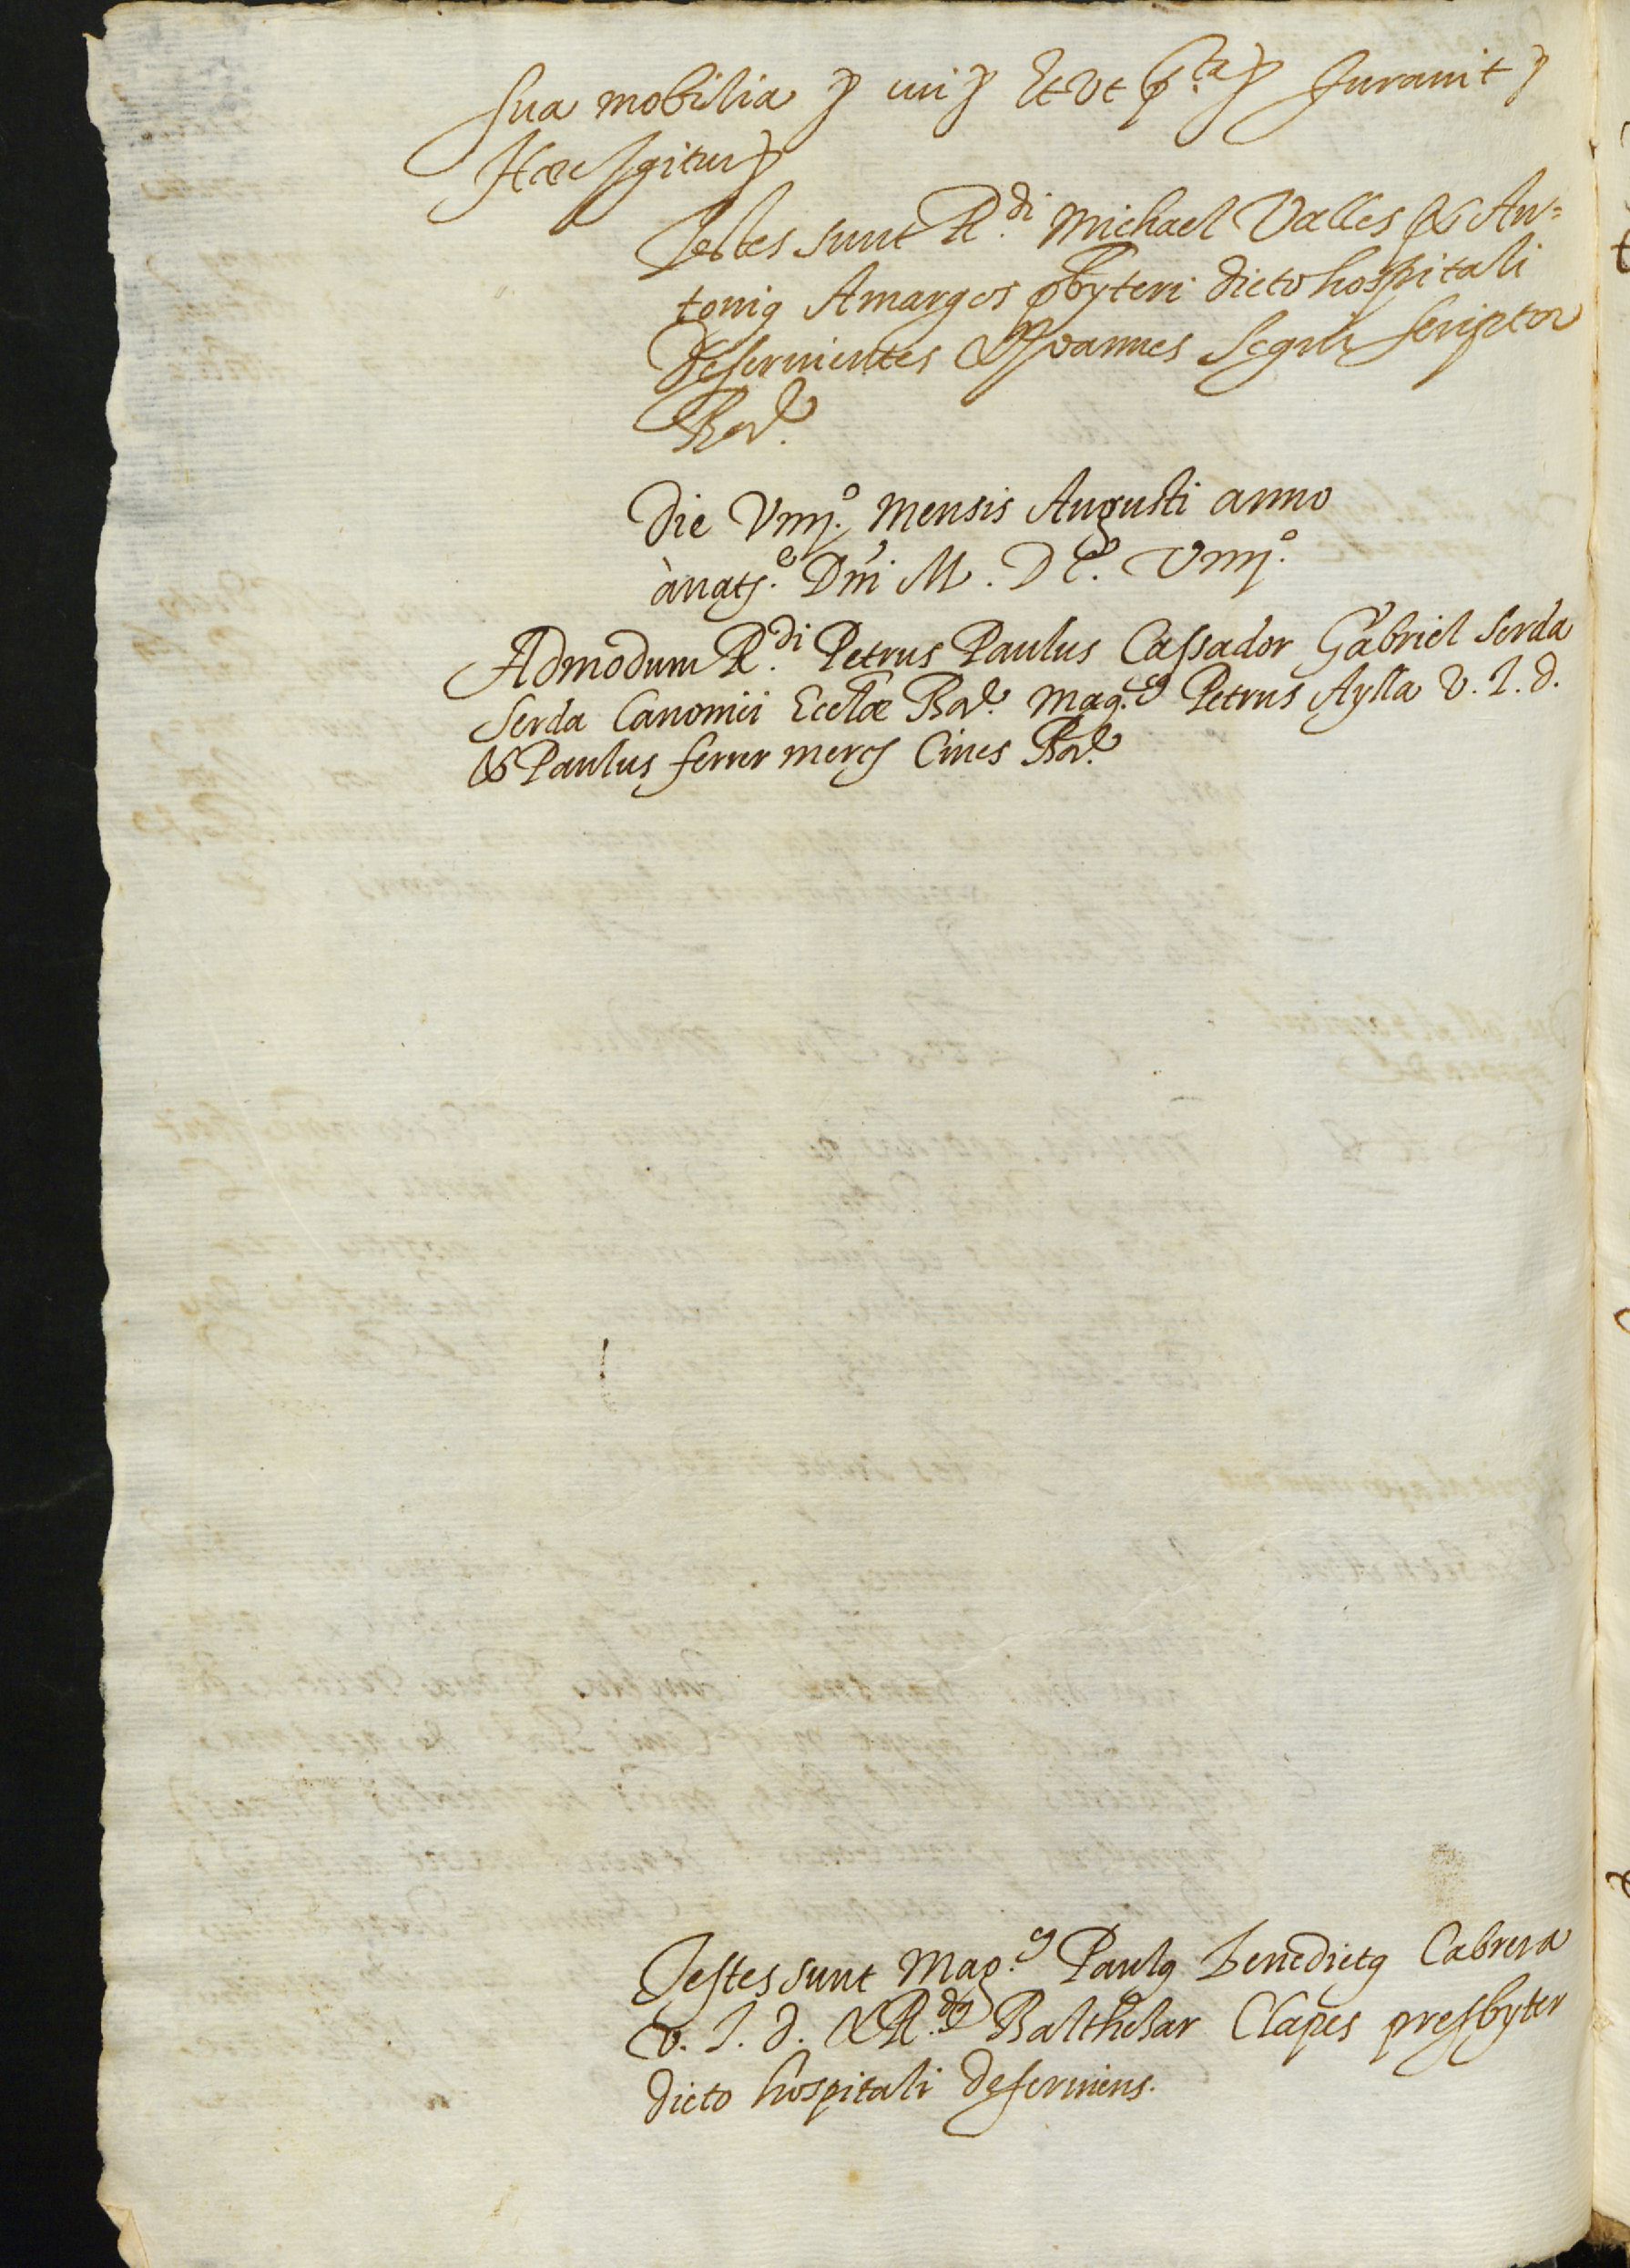 sua mobilia etc. iuri etc. Et Ut p.ta etc. Juravit etc.
Hæc Igitur etc.
Testes sunt R.di Michael Valles & An=
toniq Amargos pbyteri dicto hospitali
deservientes & Joannes scriptor
Bar.e
Die Viiij.o Mensis Augusti anno
à nat.e Dni M. DC. Viiij.o
Admodum R.di Petrus Paulus Cassador Gabriel Serda
Serda Canonici Ecclæ Bar.e Mag.cq Petrus Aylla V. I. d.
& Paulus ferrer merc. Cives Bar.e
Testes sunt Mag.cq Paulq Benedictq Cabrera
V. I. d. & R.dq Balthesar Clapes presbyter
dicto hospitali deserviens.